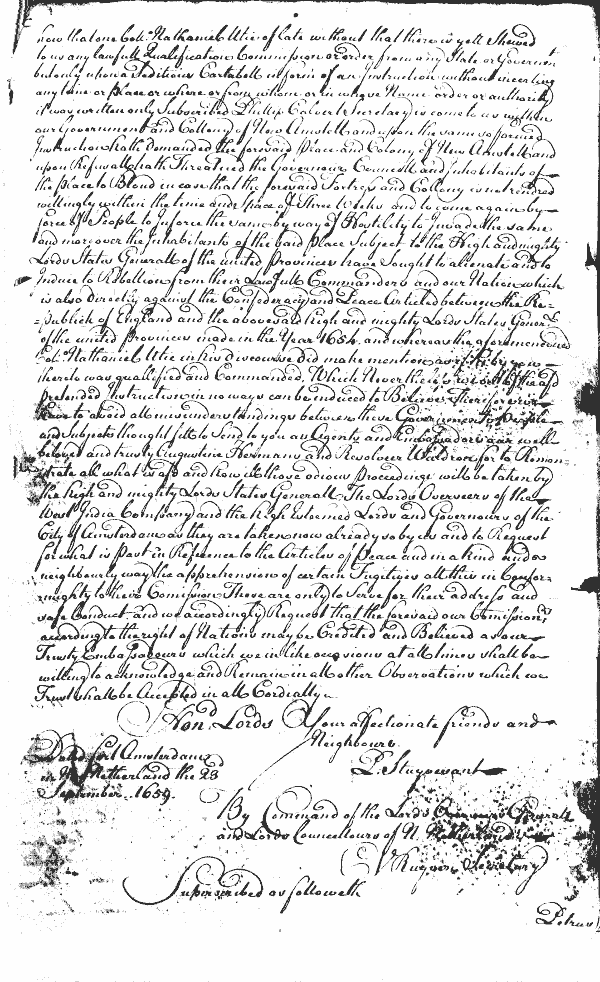 now that one Coll: Nathaniel Utie of late without that there is yett Shewed
to us any lawfull Qualification Commission or order from any State or Governour
but only upon a Seditious Cartabell in form of an Instruction without meeting
any time or place or where or from whome or in whose Name order or authority
it was written only Subscribed Phillip Calvert Secretary is come to us within
our Government and Collony of New Amstell and upon the same so formed
Instruction hath demanded the foresaid Place and Colony of New Amstell and
upon Refusall hath Threatned the Governour Councill and Inhabitants of
the place to Blood in case that the foresaid Fortress and Collony is not rendred
willingly within the time and space of Three Weeks and to come again by
force of People to Inforce the same by way of Hostility to Invade the same
and moreover the Inhabitants of the said Place Subject to the High and mighty
Lords States Generall of the united Provinces have Sought to alienate and to
Induce to Rebellion from their Lawfull Commanders and our Nation which
is also directly against the Confederacy and Peace Articled between the Re-
-publick of England and the abovesaid high and mighty Lords States Generll
of the united Provinces made in the Year 1654. and whereas the aforementioned
Col: Nathaniel Utie in his discourse did make mention as if he by you
thereto was qualified and Commanded, Which Nevertheless
pretended Instruction in no ways can be induced to Believe therefore
have to avoid all misunderstandings between those Governments People
and Subjects thought fitt to Send to you as Agents and Embassadors our well
beloved and trusty Augustine Hermans and Resolveer Waldron for to Remon-
strate all what is afsd and how ill those odious Proceedings will be taken by
the high and mighty Lords States Generall The Lords Overseers of the
West India Company and the high Esteemed Lords and Governours of the
City of Amsterdam as they are taken now already so by us and to Request
for what is past in Reference to the Articles of Peace and in a kind and a
neighbourly way the apprehension of certain Fugitives all this in Confor-
-mighty to their Comission These are only to Serve for their address and
safe Conduct, and we accordingly Request that the foresaid our Comissionrs
according to the right of Nations may be Credited and Believed as our
Trusty Embassadours which we in like occasions at all times shall be
willing to acknowledge and Remain in all other Observations which we
Trust shall be Accepted in all Cordially
Hond. Lords Your affectionate friends and
Neighbours
Dated fort Amsterdam
P. Stuyvesant
in N. Netherland the 23
September. 1659.
By Command of the Lords Generall
and Lords Councellours of N. Netherland
Ruyven Secretary
Superscribed as followeth
Petrus